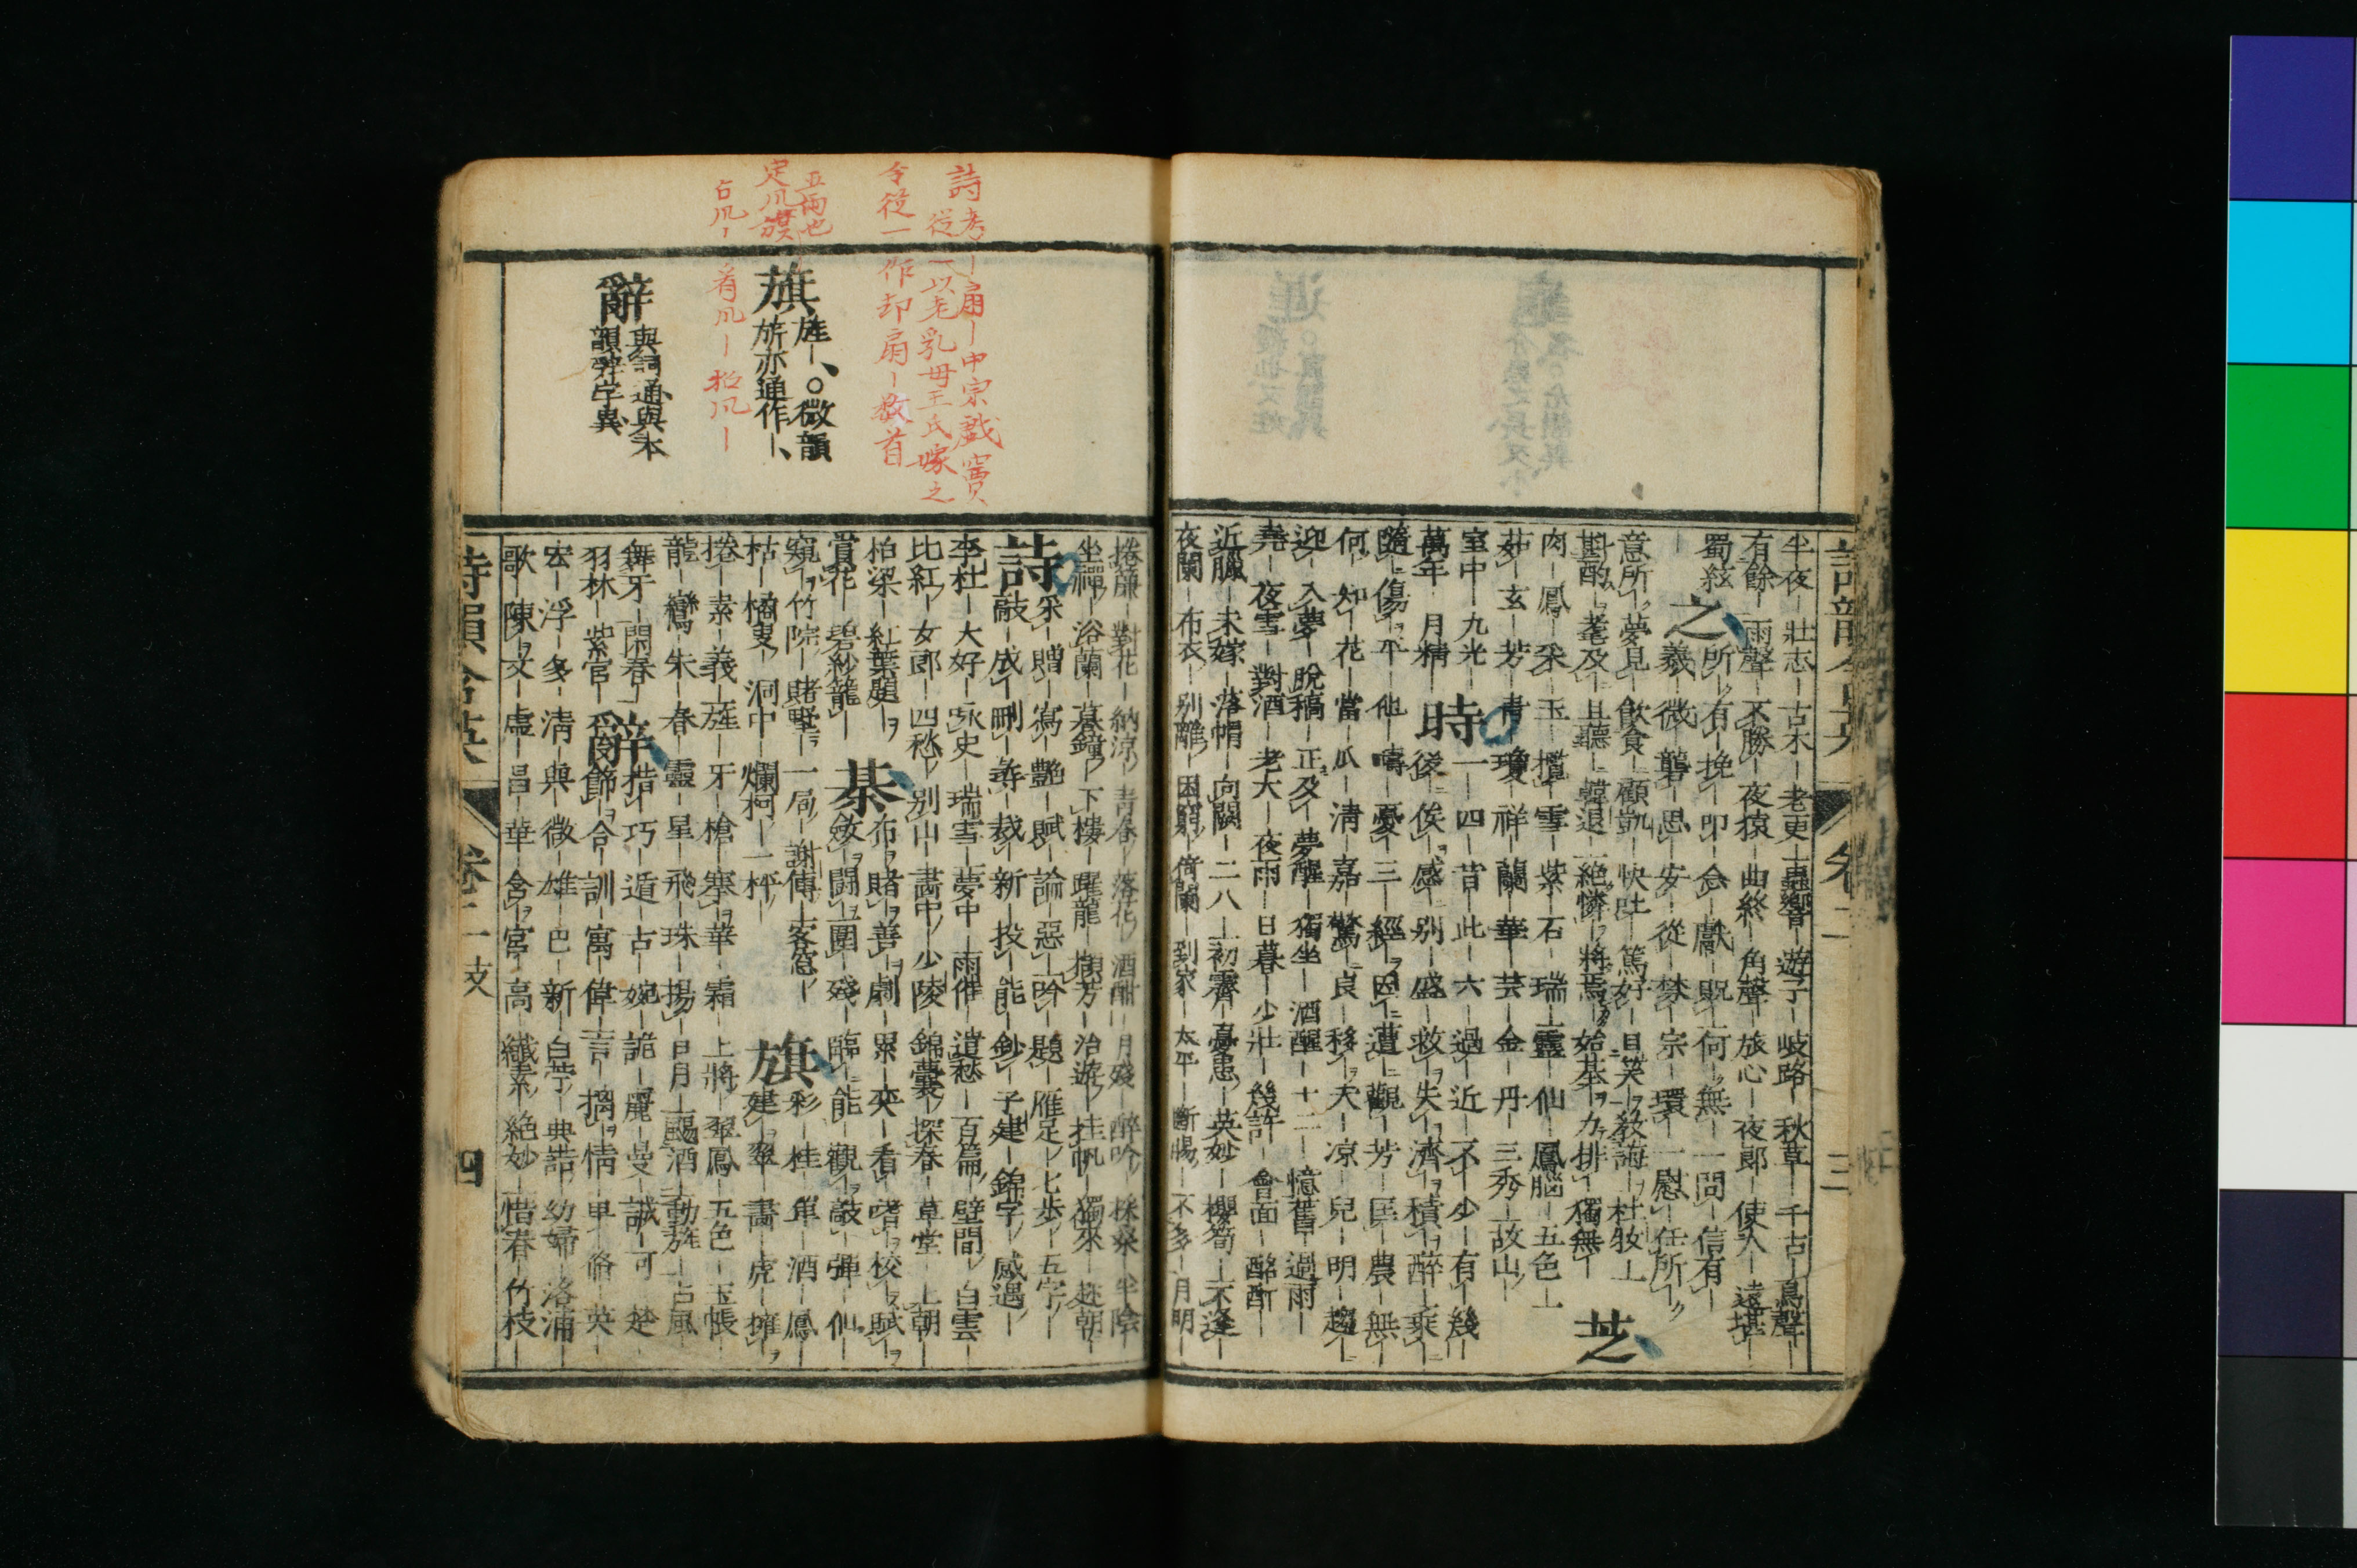 半夜｜壯志｜古木｜老吏｜蟲響｜遊子｜岐路｜秋草｜千古｜鳥聲｜
有餘｜雨聲｜不勝｜夜猿｜曲終｜角聲｜旅心｜夜郎｜使人｜遠堪｜
蜀絃｜
之 所｜有｜挽｜叩｜念｜獻｜貺｜何｜無｜一問｜信有｜
｜羲｜微｜襲｜思｜安｜從｜禁｜宗｜環｜一慰｜任所｜
意所｜夢見｜飲食｜顧凱｜快吐｜篤好｜目笑｜教誨｜杜牧｜
斟酌｜耄及｜且聽｜韓退｜絶憐｜將焉｜始基｜力排｜獨無｜
芝
肉｜鳳｜采｜玉｜攬｜雪｜紫｜石｜瑞｜靈｜仙｜鳳腦｜五色｜
茹｜玄｜芳｜青｜瓊｜祥｜蘭｜華｜芸｜金｜丹｜三秀｜故山｜
室中｜九光｜
時 一｜四｜昔｜此｜六｜過｜近｜不｜少｜有｜幾｜
萬年｜月精｜
後｜俟｜感｜別｜盛｜救｜失｜濟｜積｜醉｜乘｜
隨｜傷｜平｜他｜疇｜憂｜三｜經｜因｜遭｜觀｜芳｜匡｜農｜無｜
何｜知｜花｜當｜瓜｜清｜嘉｜驚｜良｜移｜天｜凉｜兒｜明｜趨｜
迎｜入夢｜脫稿｜正及｜夢醒｜獨坐｜酒醒｜十二｜憶舊｜過雨｜
堯｜夜雪｜對酒｜老大｜夜雨｜日暮｜少壯｜幾許｜會面｜酩酊｜
近臘｜未嫁｜落帽｜向闕｜二八｜初霽｜憂患｜英妙｜櫻筍｜不逢｜
夜闌｜布衣｜別離｜困窮｜倚闌｜到家｜太平｜斷腸｜不多｜月明｜
詩韻含英 卷二 三
捲簾｜對花｜納涼｜青春｜落花｜酒酣｜月殘｜醉吟｜採桑｜半陰｜
坐禪｜浴蘭｜暮鐘｜下樓｜躍龍｜擷芳｜冶遊｜挂帆｜獨來｜趁朝｜
詩 采｜贈｜寫｜艷｜賦｜論｜惡｜吟｜題｜雁足｜七步｜五字｜
敲｜成｜刪｜尋｜裁｜新｜投｜能｜鈔｜子建｜錦字｜感遇｜
李杜｜大好｜詠史｜瑞雪｜夢中｜雨催｜遣愁｜百篇｜壁間｜白雲｜
比紅｜女郎｜四愁｜別山｜畫中｜少陵｜錦囊｜探春｜草堂｜上朝｜
柏梁｜紅葉題｜
賞花｜碧紗籠｜
棊 布｜賭｜善｜劇｜累｜奕｜看｜嗜｜校｜賦｜
斂｜鬭｜圍｜殘｜臨｜能｜觀｜敲｜彈｜仙｜
窺｜竹院｜賭墅｜一局｜謝傅｜客窓｜
枯｜橘叟｜洞中｜爛柯｜一枰｜
旗 彩｜桂｜隼｜酒｜鳳｜
建｜翠｜畫｜虎｜擁｜
捲｜素｜義｜旌｜牙｜槍｜搴｜華｜霜｜上將｜翠鳳｜五色｜玉帳｜
龍｜鸞｜朱｜春｜靈｜星｜飛｜珠｜揚｜日月｜颺酒｜動旂｜占風｜
舞｜牙｜閑春｜
羽林｜紫官｜
辭 措｜巧｜遁｜古｜婉｜詭｜麗｜曼｜誠｜可｜楚｜
飾｜合｜訓｜寓｜偉｜言｜摛｜情｜卑｜脩｜英｜
宏｜浮｜多｜清｜與｜微｜雄｜巴｜新｜白苧｜典誥｜幼婦｜洛浦｜
歌｜陳｜文｜虛｜昌｜華｜含｜宮｜高｜纖素｜絶妙｜惜春｜竹枝｜
詩韻含英 卷二 支 四
詩
考｜扇｜中宗戲竇
從一以老乳母王氏嫁之
令從一作却扇｜數首
旗 旌｜、○微韻
旂亦通作｜、
五兩也
定風旗
占風｜ 看風｜ 招風｜
辭 與詞通與本
韻辤字異